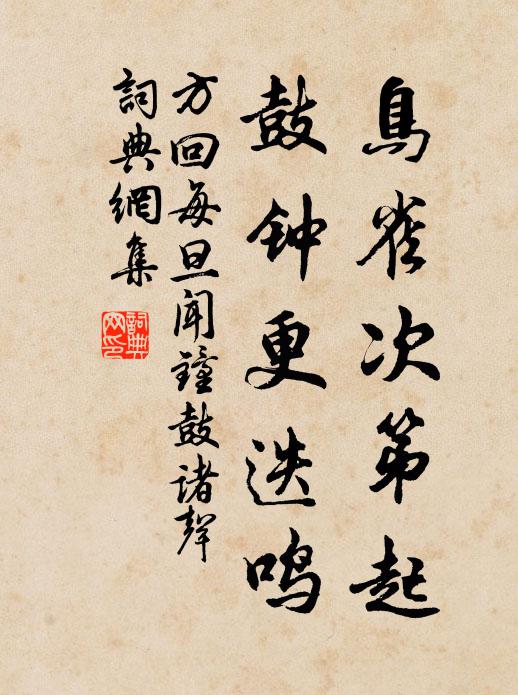 鳥雀次第起
鼓钟更迭鸣
方回每旦闻鐘鼓诸聲
詞典網集
詞典
网印